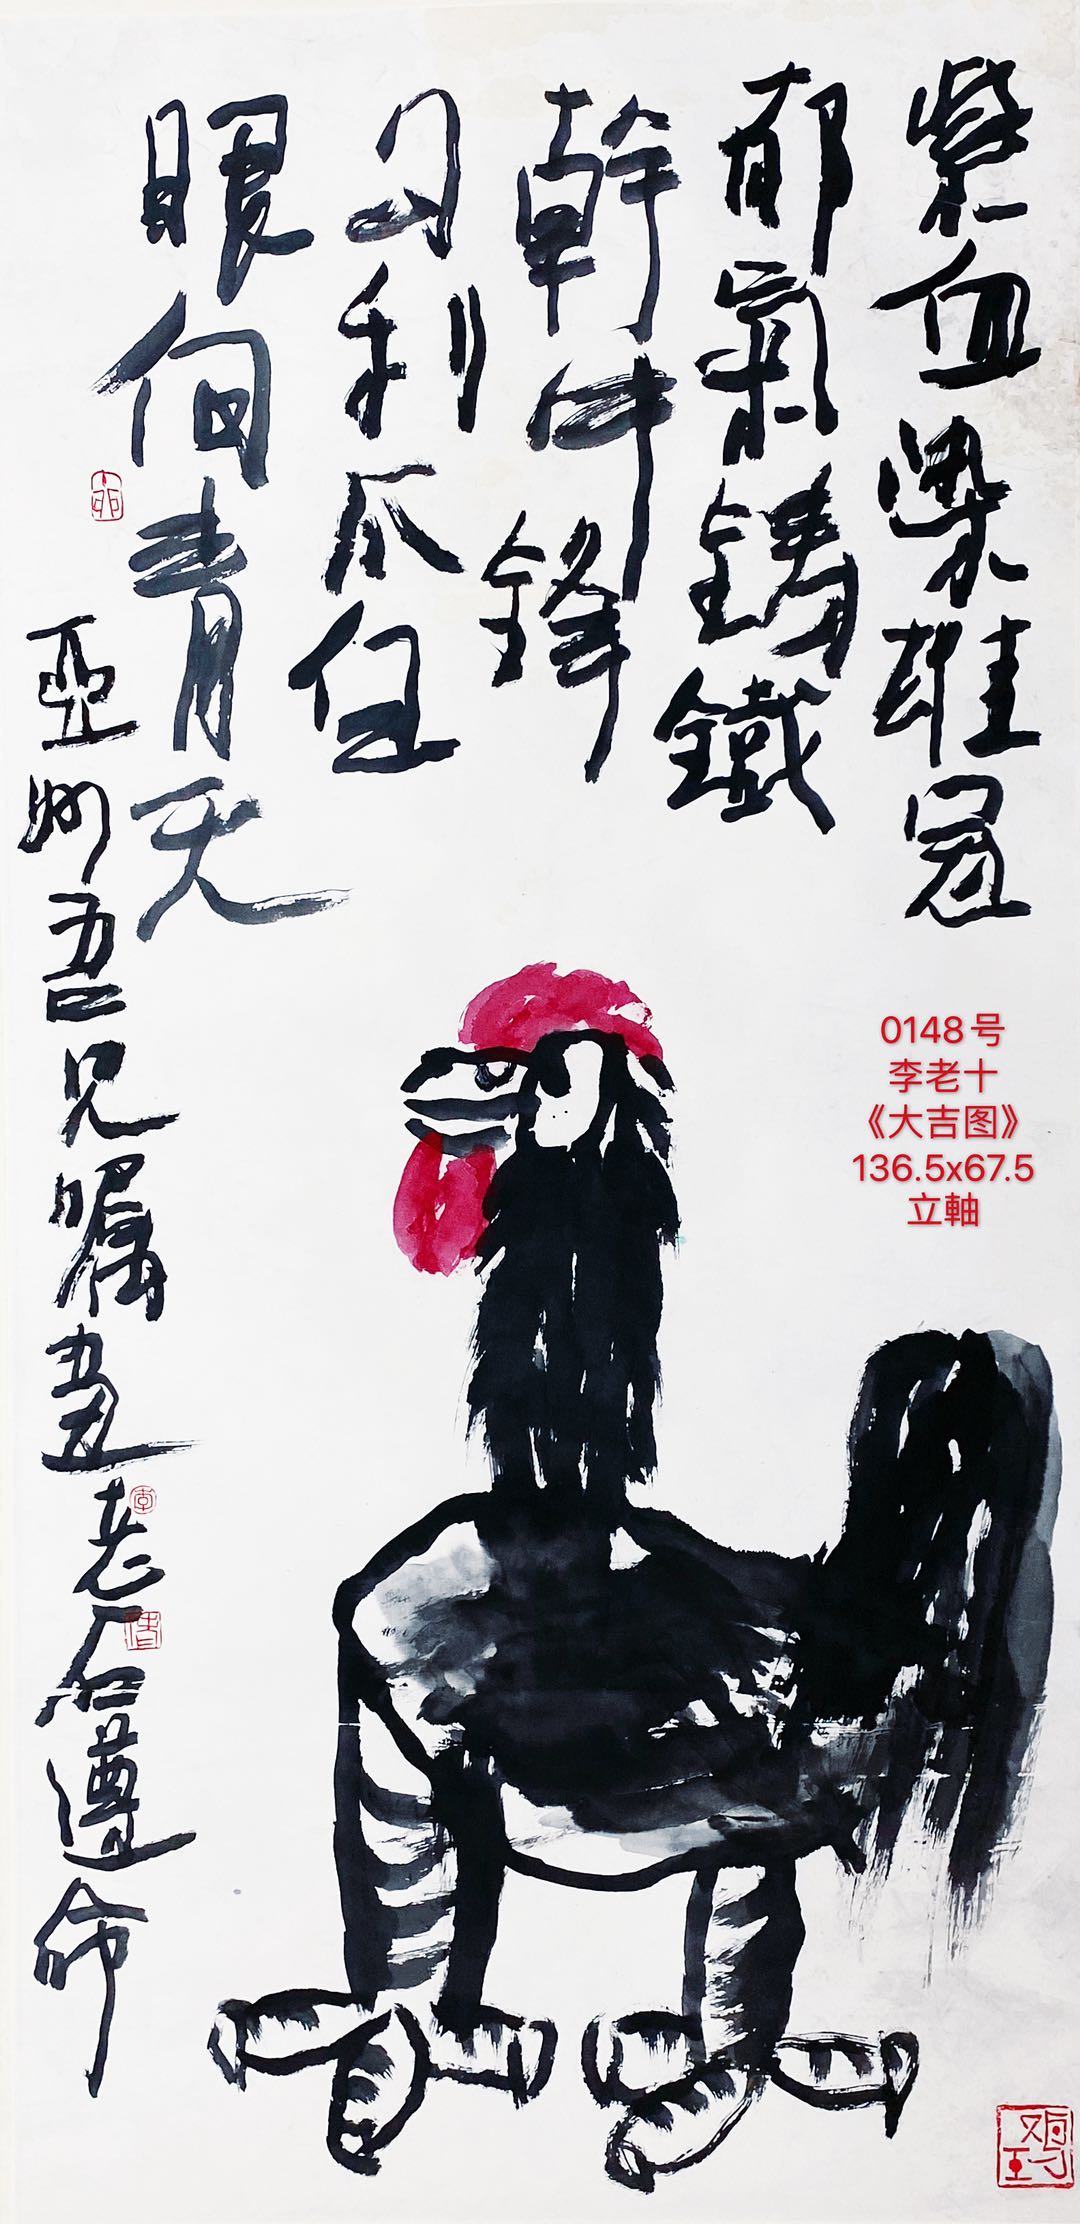 紫血染雄冠
郁氣鑄鐵
幹中鋒
勾利爪任
眼向青天
亞洲吾兄嘱畫老石遵命
0148号
李老十
《大吉图》
136.5x67.5
立軸